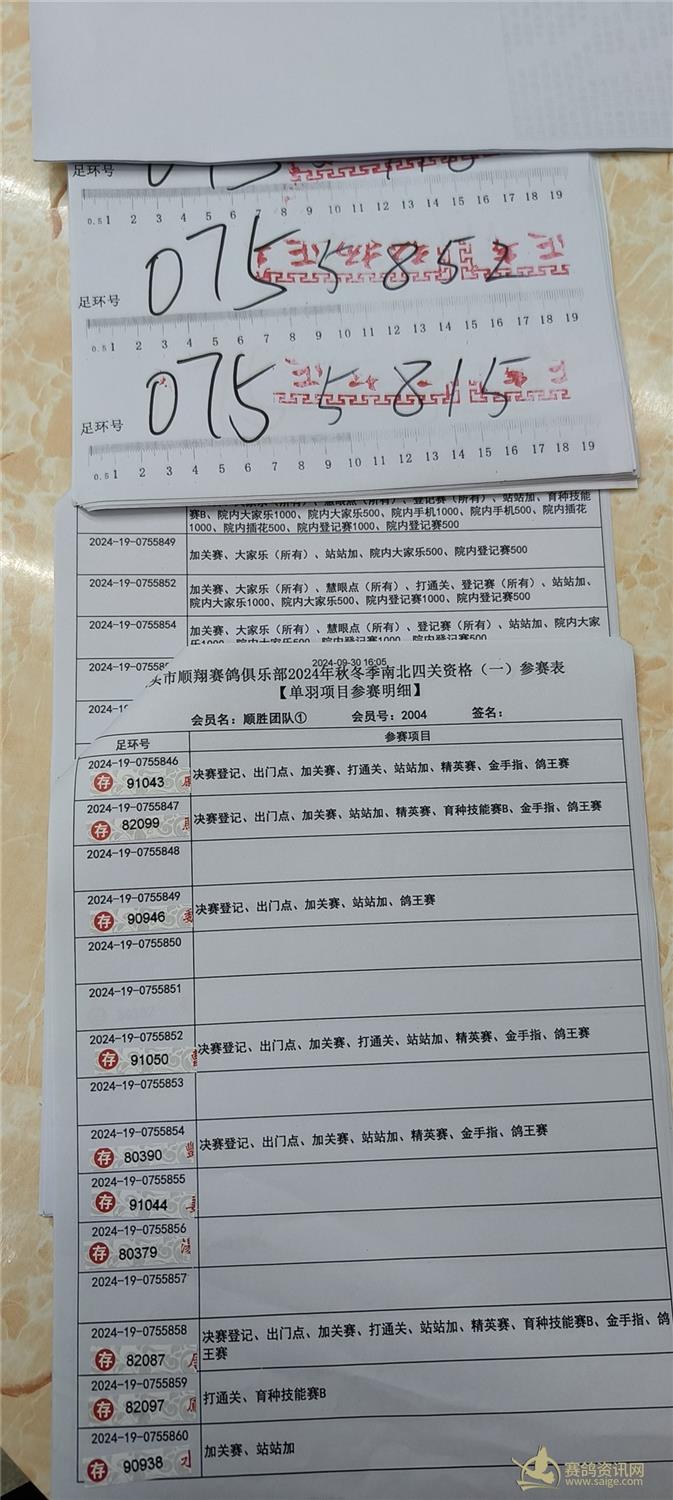 足环号
0.5 1 2 3 4 5 6 7 8 9 10 11 12 13 14 15 16 17 18 19
足环号 0755852
0.5 1 2 3 4 5 6 7 8 9 10 11 12 13 14 15 16 17 18 19
足环号 0755815
0.5 1 2 3 4 5 6 7 8 9 10 11 12 13 14 15 16 17 18 19
(所有)、慧眼点(所有)、登记赛(所有)、站站加、育种技能
赛B、院内大家乐1000、院内大家乐500、院内手机1000、院内手机500、院内插花
1000、院内插花500、院内登记赛1000、院内登记赛500
2024-19-0755849 加关赛、大家乐(所有)、站站加、院内大家乐500、院内登记赛500
2024-19-0755852 加关赛、大家乐(所有)、慧眼点(所有)、打通关、登记赛(所有)、站站加、
院内大家乐1000、院内大家乐500、院内登记赛1000、院内登记赛500
2024-19-0755854 加关赛、大家乐(所有)、慧眼点(所有)、登记赛(所有)、站站加、院内大家
乐1000、院内大家乐500、院内登记赛1000、院内登记赛500
2024-19-0755
2024-19-
2024-09-30 16:05
头市顺翔赛鸽俱乐部2024年秋冬季南北四关资格(一)参赛表
【单羽项目参赛明细】
会员名:顺胜团队① 会员号:2004 签名:
足环号 参赛项目
2024-19-0755846
存 91043
决赛登记、出门点、加关赛、打通关、站站加、精英赛、金手指、鸽王赛
2024-19-0755847
存 82099
决赛登记、出门点、加关赛、站站加、精英赛、育种技能赛B、金手指、鸽王赛
2024-19-0755848
2024-19-0755849
存 90946
决赛登记、出门点、加关赛、站站加、鸽王赛
2024-19-0755850
2024-19-0755851
2024-19-0755852
存 91050
决赛登记、出门点、加关赛、打通关、站站加、精英赛、金手指、鸽王赛
2024-19-0755853
2024-19-0755854
存 80390
决赛登记、出门点、加关赛、站站加、精英赛、金手指、鸽王赛
2024-19-0755855
存 91044
2024-19-0755856
存 80379
2024-19-0755857
2024-19-0755858
存 82087
决赛登记、出门点、加关赛、打通关、站站加、精英赛、育种技能赛B、金手指、鸽
王赛
2024-19-0755859
存 82097
打通关、育种技能赛B
2024-19-0755860
存 90938
加关赛、站站加
赛鸽资讯网
www.saige.com